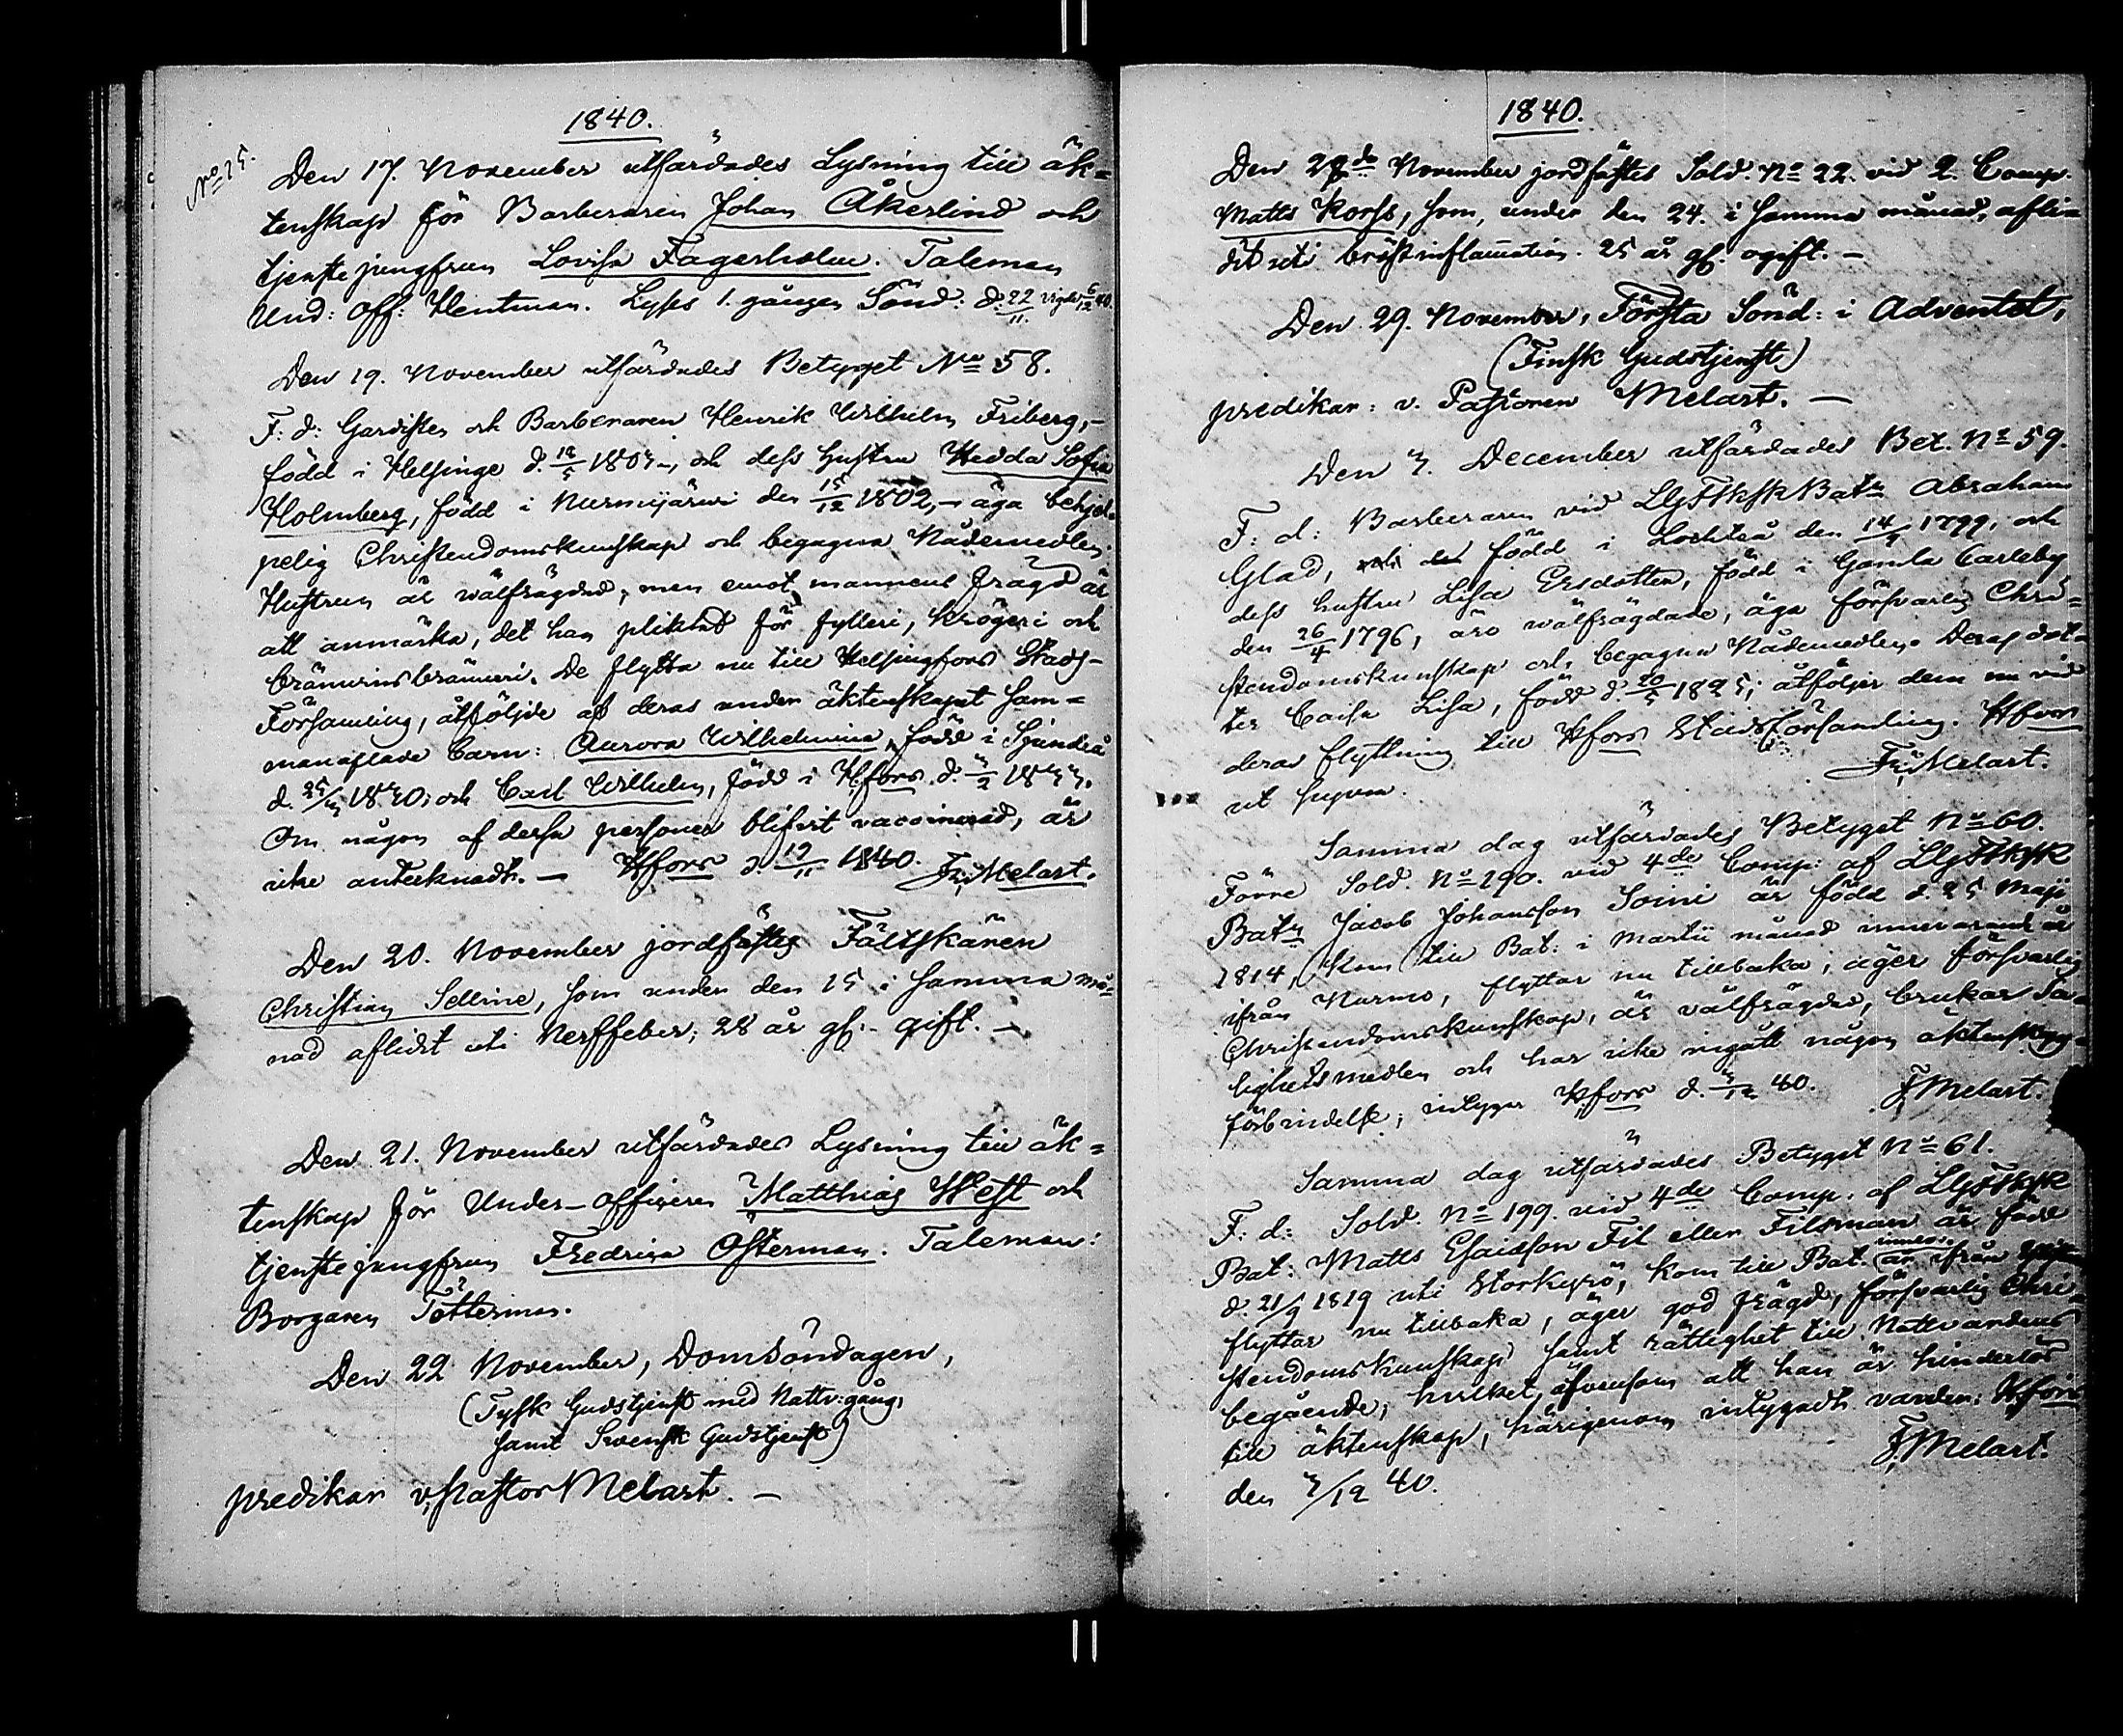 1840.
No 25.
Den 17. November utfärdades Lysning till äk=
tenskap för Barberaren Johan Åkerlind och
tjenstejungfrun Lovisa Fagerholm. Taleman
Und: Off: Hentman. Lyses 1. gången Sönd: d. 22/11. vigde 6/12 40.
Den 19. November utfärdades Betyget No 58.
F: d: Gardisten och Barberaren Henrik Wilhelm Friberg,-
född i Helsinge d. 18/5 1803-, och dess hustru Hedda Sofia
Holmberg, född i Nurmijärvi den 15/12 1802,- äga behjel-
pelig Christendomskunskap och begagna Nådemedlen.
Hustrun är wälfrägdad, men emot mannens frägd är
att anmärka, det han pliktat för fylleri, krögeri och
bränvinsbränneri. De flytta nu till Helsingfors Stads-
Församling, åtföljde af deras under äktenskapet sam=
manaflade barn: Aurora Wilhelmina, född i Sjundeå
d. 25/3 1830; och Carl Wilhelm, född i Hfors d. 3/2 1833.
Om någon af dessa personer blifvit vaccinerad, är
icke antecknadt. - Hfors d. 19/11 1840. Fr. Melart.
Den 20. November jordfästes Fältskären
Christian Selline, som under den 15 i samma må=
nad aflidit uti Nerffeber; 28 år gl. - gift. -
Den 21. November utfärdades Lysning till äk=
tenskap för Under-officeren Matthias West och
tjenstejungfrun Fredrica Österman. Taleman:
Borgaren Tötterman.
Den 22 November, Domsöndagen,
(Tysk Gudstjenst med Nattv:gång,
samt Svensk Gudstjenst)
predikar v. Pastor Melart. -
1840.
Den 27de November jordfästes Sold. No 22. vid 2. Comp.
Matts Korss, som, under den 24. i samma månad, afli=
dit uti bröstinflamation. 25 år gl. ogift. -
Den 29. November, Första Sönd: i Adventet,
(Finsk Gudstjenst)
predikar: v. Pastoren Melart. -
Den 3. December utfärdades Bet. No 59.
F: d: Barberaren vid LGFskskBatn Abraham
Glad, född i Lochteå den 14/3 1799, och
dess hustru Lisa Ersdotter, född i Gamla Carleby
den 26/4 1796, äro wälfrägdade, äga försvarlig Chri=
stendomskunskap och begagna Nådemedlen. Deras dot=
ter Caisa Lisa, född d. 20/5 1825, åtföljer dem nu vid
deras flyttning till Hfors Stadsförsamling. Hfors
ut supra. Fr. Melart.
Samma dag utfärdades Betyget No 60.
Förre Sold. No 190. vid 4de Comp: af LGFskSk
Batn Jacob Johansson Soini är född d. 25 Maji
1814, kom till Bat: i Martii månad innevarande år
ifrån Nurmo, flyttar nu tillbaka; äger försvarlig
Christendomskunskap, är välfrägdad, brukar Sa=
lighetsmedlen och har icke ingått någon äktenskaps=
förbindelse; intygar Hfors d. 3/12 40. F. Melart.
Samma dag utfärdades Betyget No 61.
F: d: Sold. No 199. vid 4de Comp. af LGFskSk
Bat: Matts Esaiasson Fil eller Filsman är född
d. 21/9 1819 uti Storkyrö, kom till Bat. innev. år ifrån
flyttar nu tillbaka, äger god frägd, försvarlig Chri=
stendomskunskap samt rättighet till Nattvardens
begående; hvilket, äfvensom att han är hinderlös
till äktenskap, härigenom intygadt varder. Hfors
den 3/12 40. F. Melart.